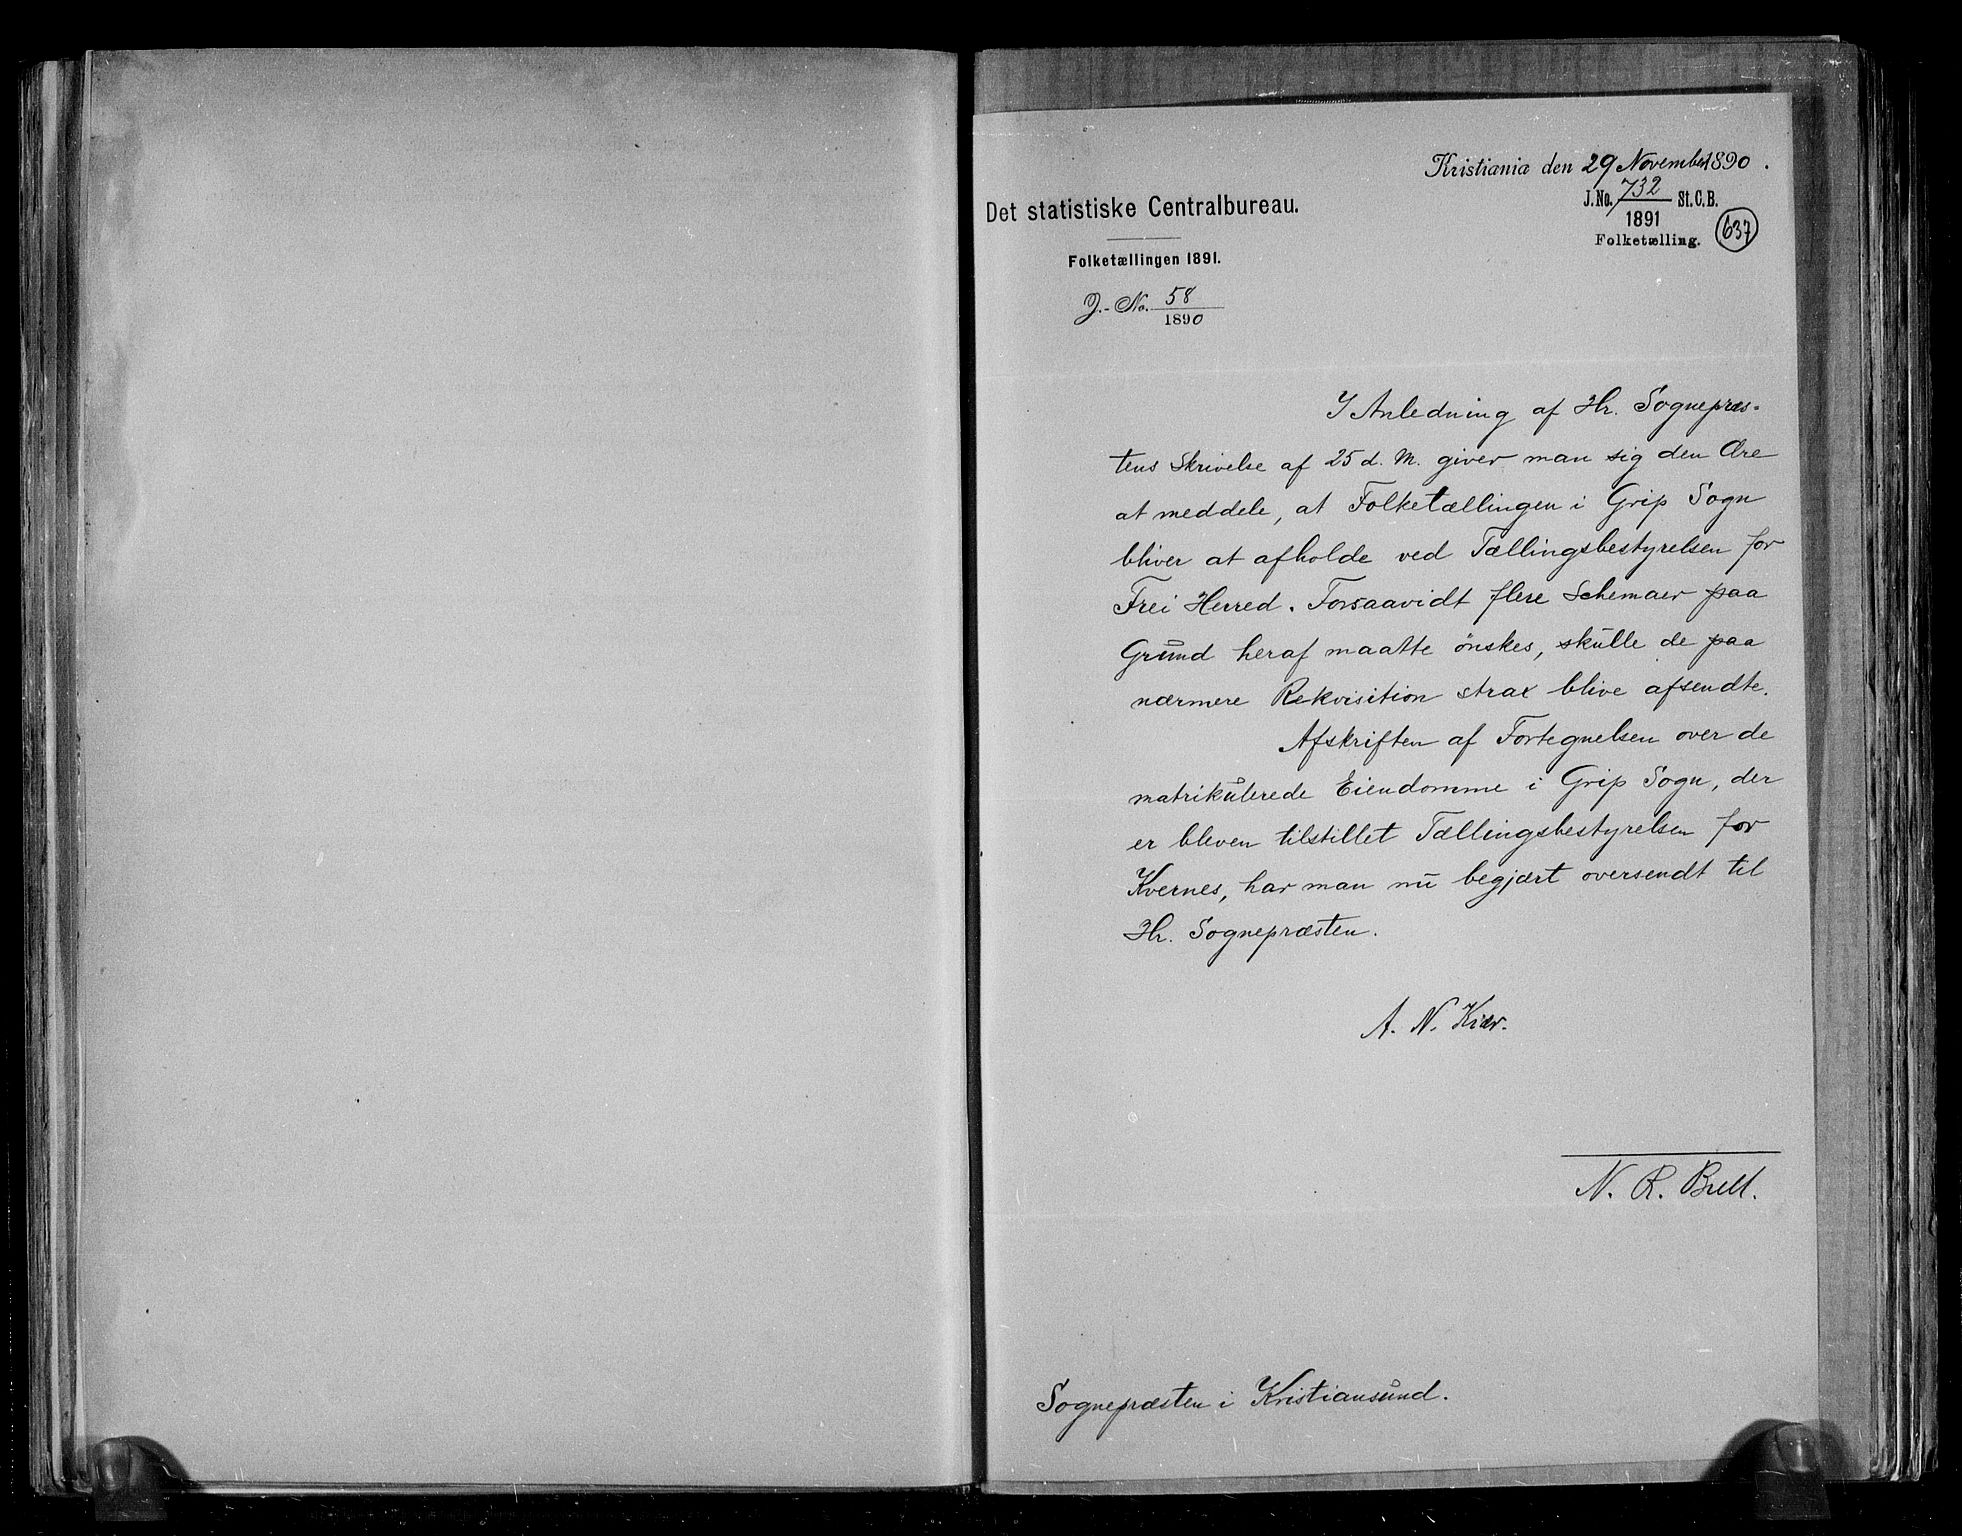 Kristiania den 29 November 1890.
J. No. 732 St. C. B.
1891
Folketælling.
637
Det statistiske Centralbureau.
Folketællingen 1891.
J.-No. 58
1890
I Anledning af Hr. Sognepræs-
tens Skrivelse af 25 d. M. giver man sig den Ære
at meddele, at Folketællingen i Grip Sogn
bliver at afholde ved Tællingsbestyrelsen for
Frei Herred. Forsaavidt flere Schemaer paa
Grund heraf maatte ønskes, skulle de paa
nærmere Rekvisition strax blive afsendte.
Afskriften af Fortegnelsen over de
matrikulerede Eiendomme i Grip Sogn, der
er bleven tilstillet Tællingsbestyrelsen for
Kvernes, har man nu begjært oversendt til
Hr. Sognepræsten.
A. N. Kiær.
N. R. Bull.
Sognepræsten i Kristiansund.